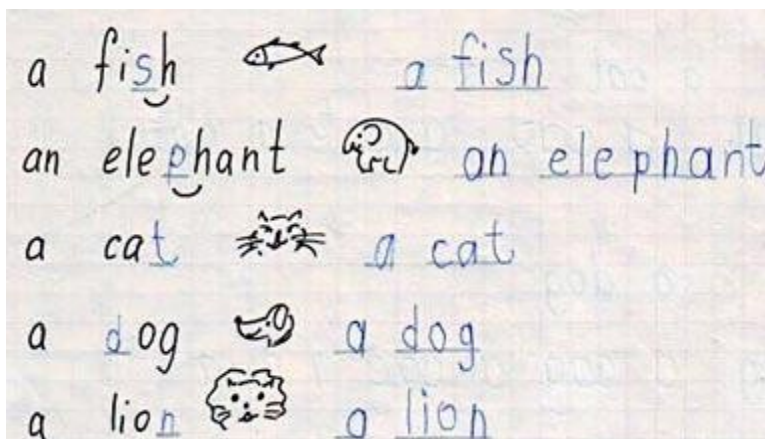 a fish a fish
an elephant an elephant
a cat a cat
a dog a dog
a lion a lion